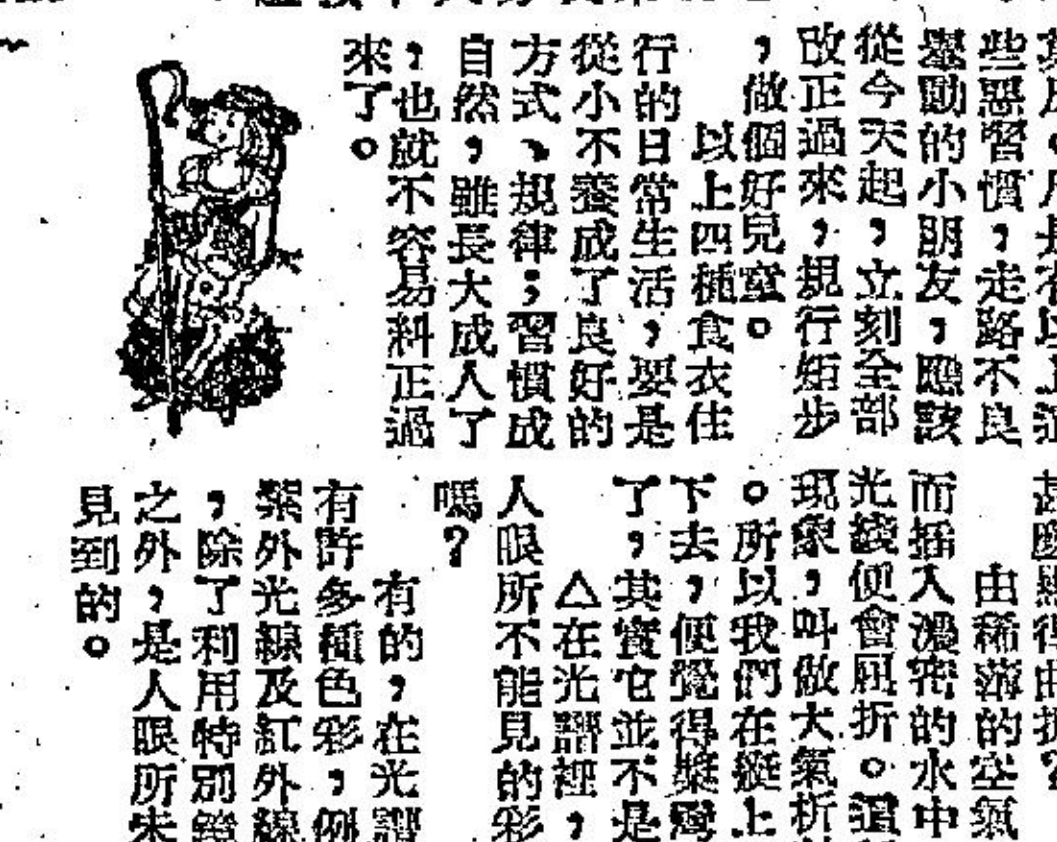 些惡習慣，走路不良
舉動的小朋友，應該
從今天起，立刻全部
改正過來，規行矩步
，做個好兒童。
以上四種食衣住
行的日常生活，要是
從小不養成了良好的
方式、規律；習慣成
自然，雖長大成人了
，也就不容易糾正過
來了。
由稀薄的空氣
而插入濃密的水中
光綫便會屈折。這
現象，叫做大氣折
。所以我們在艇上
下去，便覺得槳彎
了，其實它並不是
△在光譜裡，
人眼所不能見的彩
嗎？
有的，在光譜
有許多種色彩，例
紫外光線及紅外線
，除了利用特別
之外，是人眼所未
見到的。